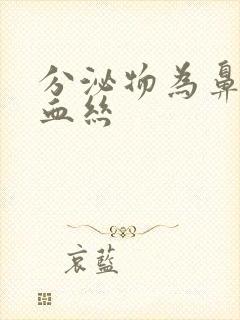 分泌物為鼻
血絲
哀藍